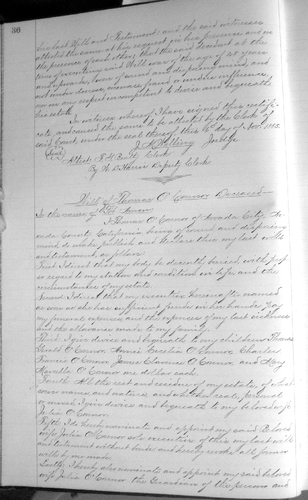 38
his last Will and Testament; and the said witnesses
attested the same at his request in his presence and in
the presence of each other; that the said decedent at the
time of executing said Will was of the age of years
and of sound and disposing mind, and
not under duress, menace, fraud or undue influence,
nor in any respect incompetent to devise and bequeath
his estate.
In witness whereof I have signed this certifi-
cate, and caused the same to be attested by the Clerk of
said Court, under the seal thereof this 6th day of Nov. 1882.
Judge
Attest Clerk
By Deputy Clerk
Will of Thomas O'Connor Deceased
In the name of God Amen
I Thomas O'Connor of Nevada City, Ne-
vada County California being of sound and disposing
mind do make publish and declare this my last will
and testament as follows
First I direct that my body be decently buried with prop-
er regard to my station and condition in life and the
circumstances of my estate.
Second I direct that my executrix hereinafter named
as soon as she has sufficient funds in her hands pay
my funeral expenses and the expenses of my last sickness
and the allowance made to my family.
Third I give devise and bequeath to my children Thomas
O'Connor, Annie O'Connor, Charles
Francis O'Connor, James O'Connor, and Mary
O'Connor one dollar each.
Fourth All the rest and residue of my estate, of what-
ever name and nature, and whether real, personal
or mixed, I give devise and bequeath to my beloved wife
Julia O'Connor.
Fifth I do hereby nominate and appoint my said beloved
wife Julia O'Connor sole executrix of this my last will
and without bonds and hereby revoke all former
wills by me made.
Lastly I hereby also nominate and appoint my said beloved
wife Julia O'Connor the Guardian of the persons and